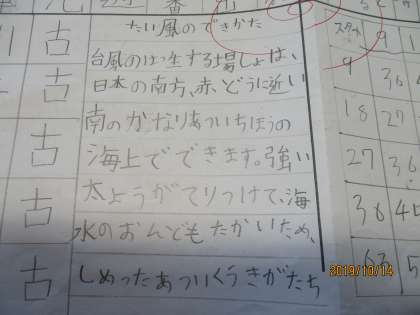 たい風のできかた
台風のはっ生する場しょは、
日本の南方、赤どうに近い
南のかなりあついちほうの
海上でできます。強い
太ようがてりつけて、海
水のおんどもたかいため、
しめったあついくうきがたち
古
古
古
古
古
スタート 9
9 36
18 27
27 36
36 45
63
2019/10/14